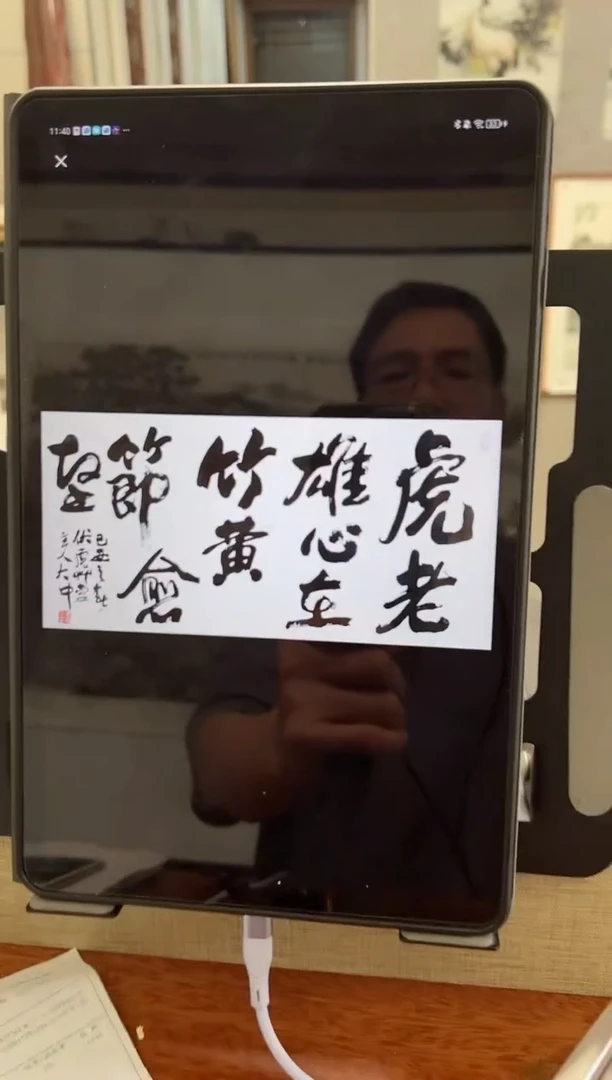 11:40
虎老
雄心在
竹黄
節愈
堅
伏虎艸堂
主人大中